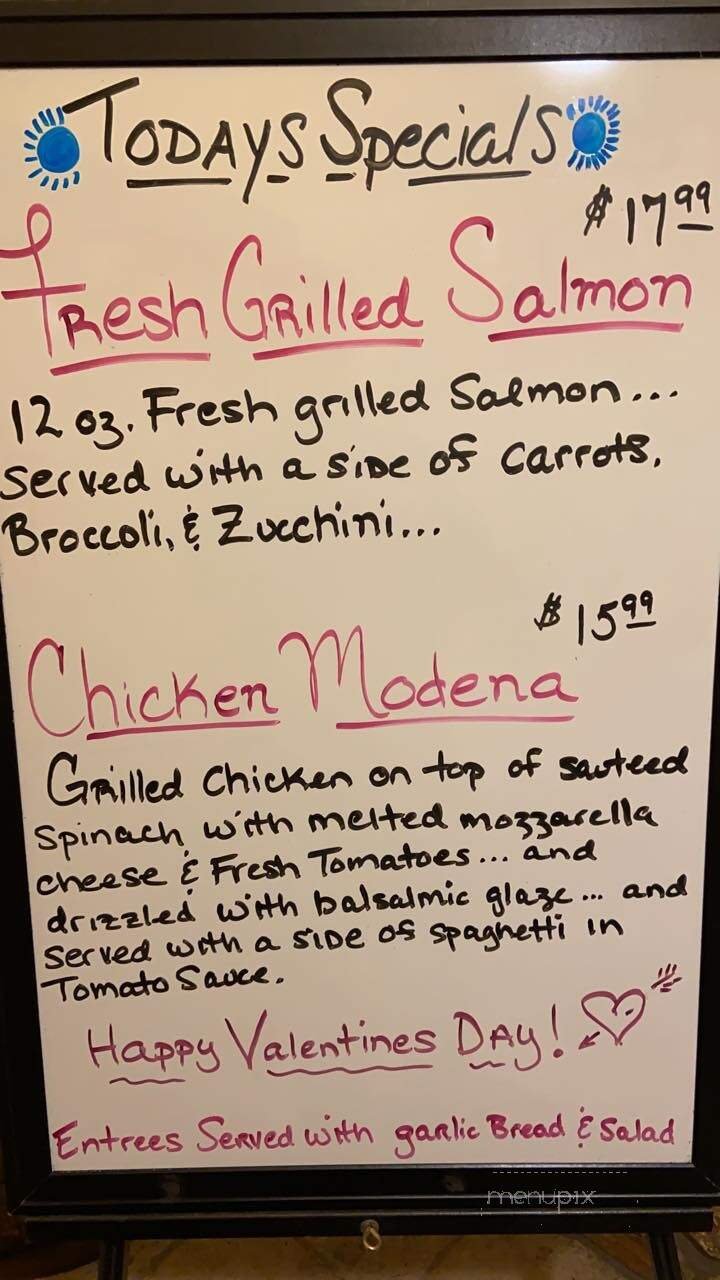 Todays Specials
$17.99
Fresh Grilled Salmon
12 oz. Fresh grilled Salmon...
Served with a side of carrots,
Broccoli, & Zucchini...
$15.99
Chicken Modena
Grilled Chicken on top of sauteed
Spinach with melted mozzarella
cheese & Fresh Tomatoes... and
drizzled with balsalmic glaze... and
Served with a side of spaghetti in
Tomato Sauce.
Happy Valentines Day!
Entrees Served with garlic Bread & Salad
menupix